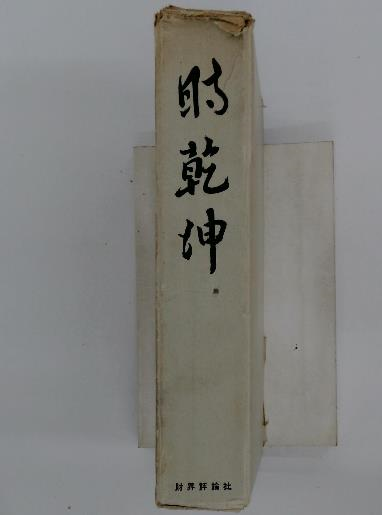 賭乾坤
財界評論社